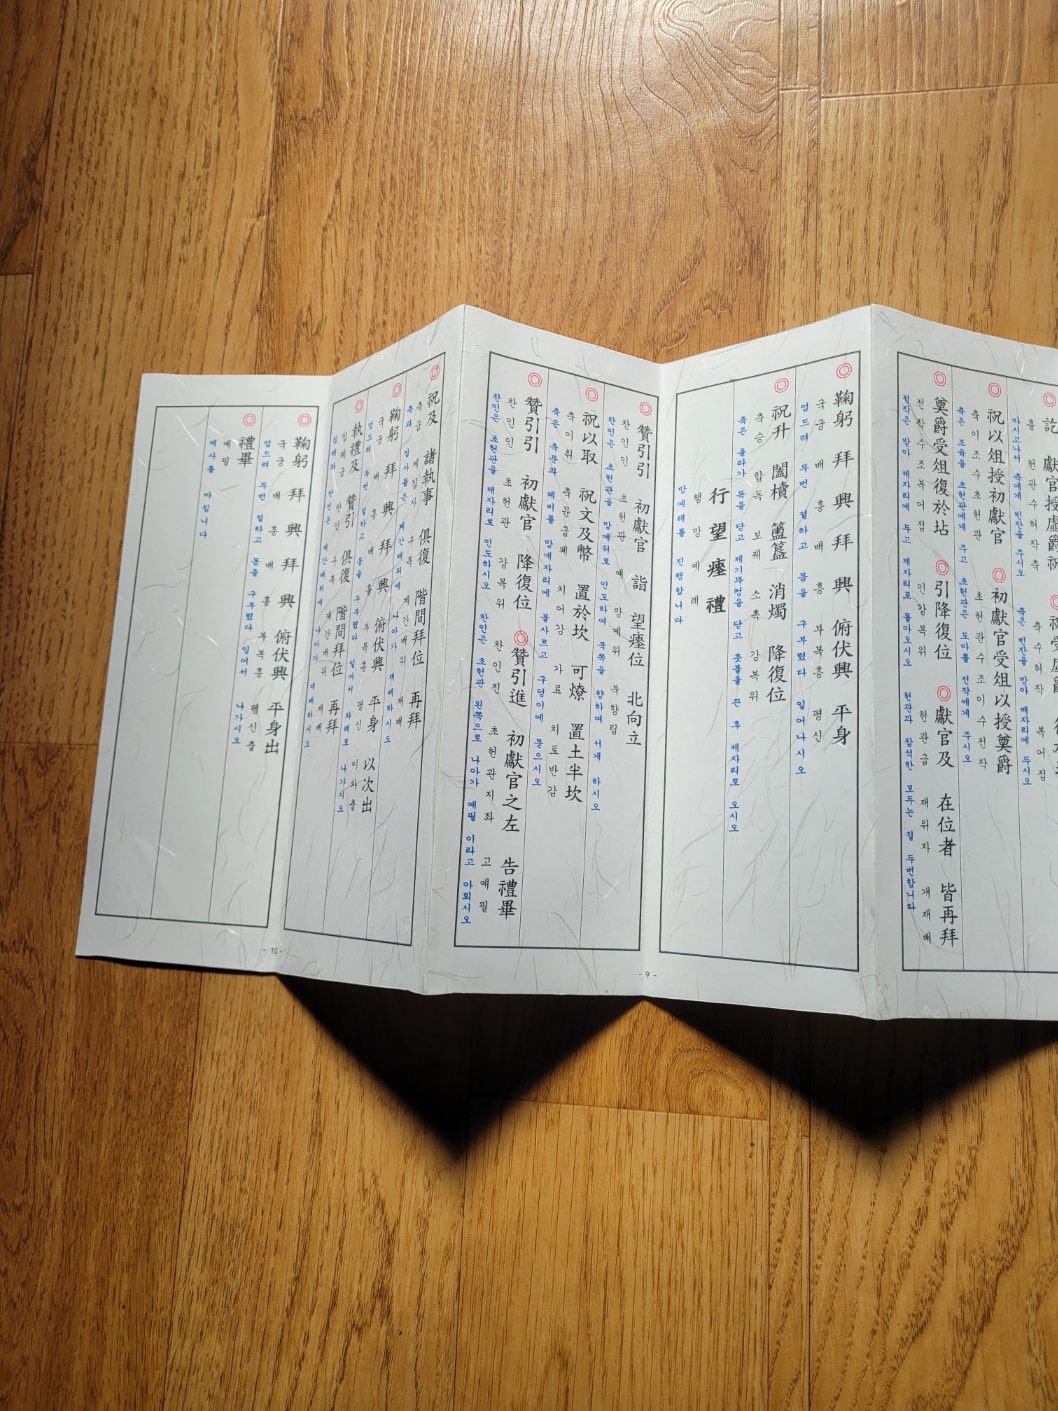 ◎祝以俎授初獻官 ◎初獻官受俎以授奠爵
축이조수초헌관 초헌관수조이수전작
축은 조육을 초헌관에게 주고 초헌관은 도마를 전작에게 주시오
◎奠爵受俎復於坫 ◎引降復位 ◎獻官及 在位者 皆再拜
전작수조복어점 인강복위 헌관급 재위자 개재배
전작은 받아 제자리에 두고 제자리로 돌아오시오 헌관과 참석한 모두는 절 두번합니다
◎鞠躬 拜 興 拜 興 俯伏興 平身
국궁 배 흥 배 흥 부복흥 평신
엎드려 두번 절하고 몸을 구부렸다 일어나시오
◎祝升 闔櫝 簠簋 消燭 降復位
축승 합독 보궤 소촉 강복위
축은 올라가 독을 닫고 제기뚜껑을 닫고 촛불을 끈 후 제자리로 오시오
行 望 瘞 禮
행 망 예 례
망예례를 진행합니다
◎贊引引 初獻官 詣 望瘞位 北向立
찬인인 초헌관 예 망예위 북향립
찬인은 초헌관을 망예위로 인도하여 북쪽을 향하여 서게 하시오
◎祝以取 祝文及幣 置於坎 可燎 置土半坎
축이취 축문급폐 치어감 가료 치토반감
축은 축문과 폐비를 망예자리에 불사르고 구덩이에 묻으시오
◎贊引引 初獻官 降復位 ◎贊引進 初獻官之左 告禮畢
찬인인 초헌관 강복위 찬인진 초헌관지좌 고예필
찬인은 초헌관을 제자리로 인도하시오 찬인은 초헌관 왼쪽으로 나아가 예필 이라고 아뢰시오
- 9 -
◎祝及 諸執事 俱復 階間拜位 再拜
축급 제집사 구복 계간배위 재배
축과 집사들은 계간배위에 나아가 재배하시오
◎鞠躬 拜 興 拜 興 俯伏興 平身 以次出
국궁 배 흥 배 흥 부복흥 평신 이차출
엎드려 두번 절하고 몸을 구부렸다 일어서 차례로 나가시오
◎執禮及 贊引 俱復 階間拜位 再拜
집례급 찬인 구복 계간배위 재배
집례와 찬인은 계간배위에 나아가 재배하시오
◎鞠躬 拜 興 拜 興 俯伏興 平身出
국궁 배 흥 배 흥 부복흥 평신출
엎드려 두번 절하고 몸을 구부렸다 일어서 나가시오
◎禮畢
예필
제사를 마칩니다
- 10 -